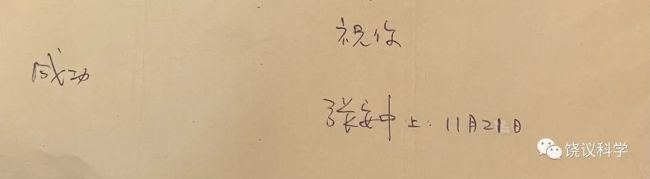 祝你
成功
张安中 上. 11月21日
饶议科学